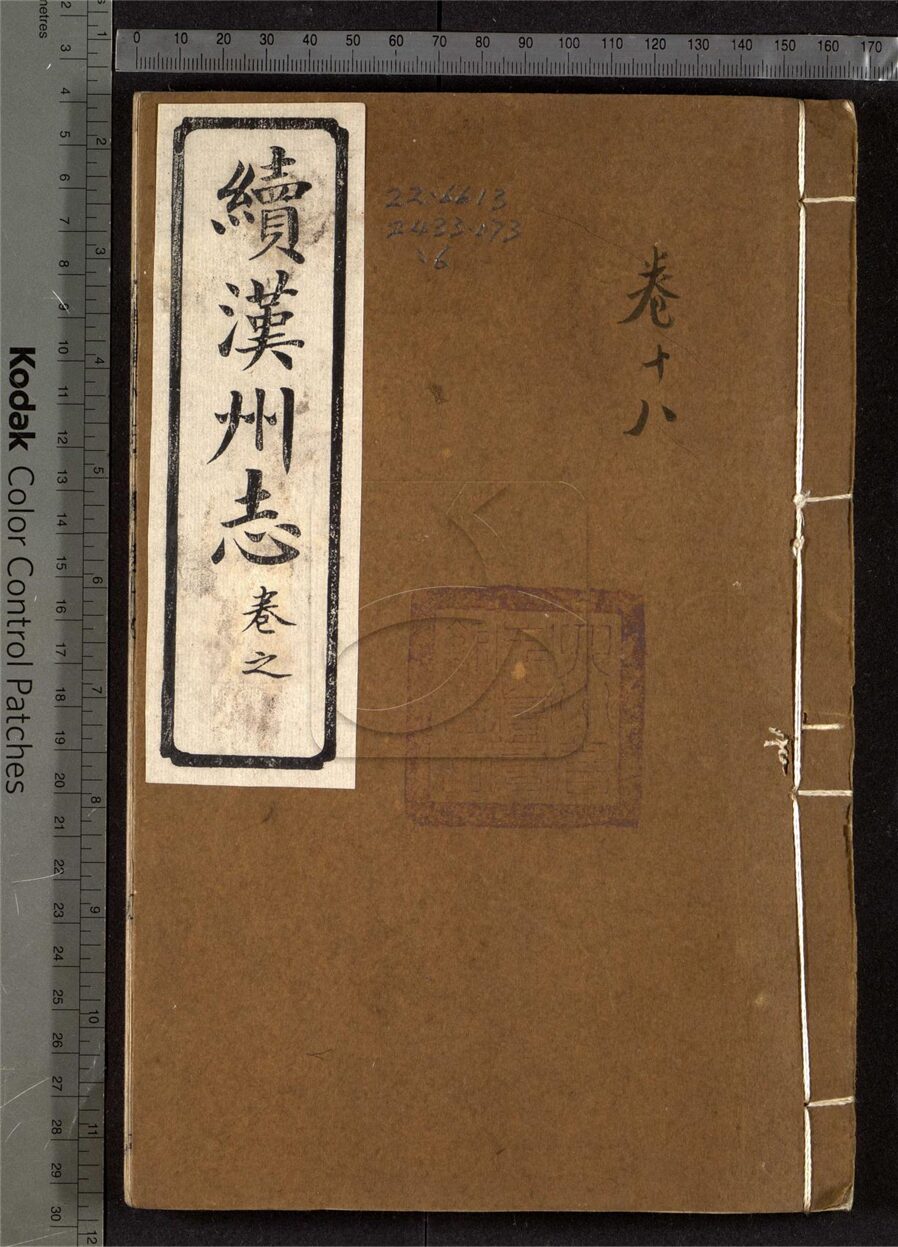 續漢州志
卷之
卷十八
22·6613
2433·173
Kodak Color Control Patches
0 10 20 30 40 50 60 70 80 90 100 110 120 130 140 150 160 170
2 3 4 5 6 7 8 9 10 11 12 13 14 15 16 17 18 19 20 21 22 23 24 25 26 27 28 29 30
1 2 3 4 5 6 7 8 9 10 11 12